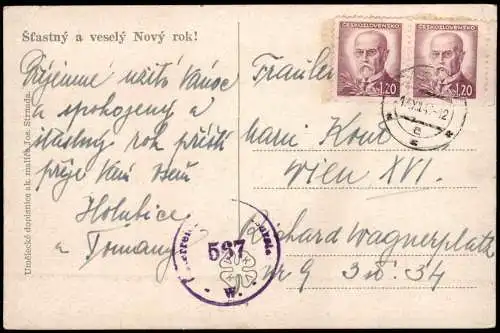 Šťastný a veselý Nový rok!
Příjemné užití Vánoc
a spokojený a
šťastný rok příští
přeje Vám všem
Holubice
a Tomany
Umělecké dopisnice ak. malíře Jos. Strnada.
ČESKOSLOVENSKO ČESKOSLOVENSKO
1.20 1.20
Fraulein
Mani
Wien XVI.
Richard Wagnerplatz
nr 9 34
567
W.